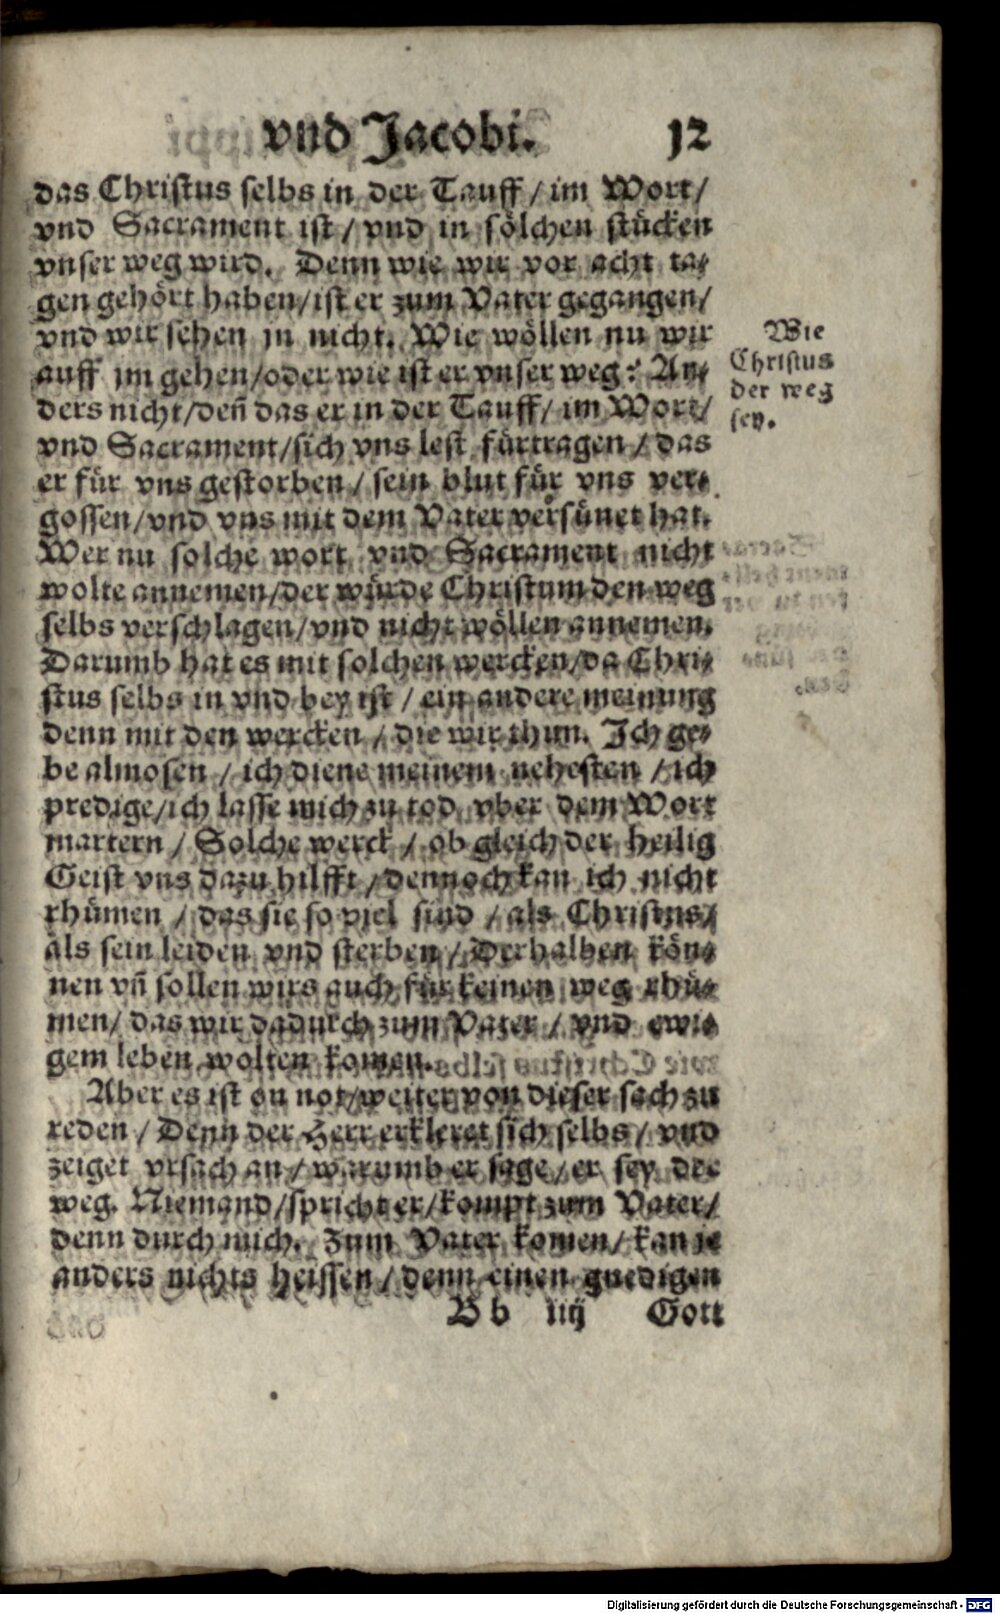 vnd Jacobi. 12
das Christus selbs in der Tauff / im Wort /
vnd Sacrament ist / vnd in sölchen stücken
vnser weg wird. Denn wie wir vor acht ta-
gen gehört haben / ist er zum Vater gegangen /
vnd wir sehen jn nicht. Wie wöllen nu wir
auff jm gehen / oder wie ist er vnser weg? An-
ders nicht / deñ das er in der Tauff / im Wort /
vnd Sacrament / sich vns lest fürtragen / das
er für vns gestorben / sein blut für vns ver-
gossen / vnd vns mit dem Vater versünet hat.
Wer nu solche wort vnd Sacrament nicht
wolte annemen / der würde Christum den weg
selbs verschlagen / vnd nicht wöllen annemen.
Darumb hat es mit solchen wercken / da Chri-
stus selbs in vnd bey ist / ein andere meinung
denn mit den wercken / die wir thun. Ich ge-
be almosen / ich diene meinem nehesten / ich
predige / ich lasse mich zu tod vber dem Wort
martern / Solche werck / ob gleich der heilig
Geist vns dazu hilfft / dennoch kan ich nicht
rhümen / das sie so viel sind / als Christus /
als sein leiden vnd sterben / Derhalben kön-
nen vñ sollen wirs auch für keinen weg rhü-
men / das wir dadurch zum Vater / vnd ewi-
gem leben wolten komen.
Aber es ist on not / weiter von dieser sach zu
reden / Denn der Herr erkleret sich selbs / vnd
zeiget vrsach an / warumb er sage / er sey der
weg. Niemand / spricht er / kompt zum Vater /
denn durch mich. Zum Vater komen / kan je
anders nichts heissen / denn einen gnedigen
B b iiij Gott
Wie
Christus
der weg
sey.
Digitalisierung gefördert durch die Deutsche Forschungsgemeinschaft - DFG